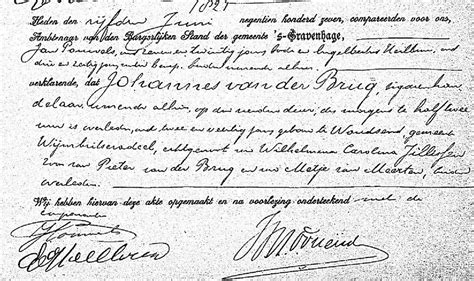 1827
Heden den vijfden Juni negentien honderd zeven, compareerden voor ons,
Ambtenaar van den Burgerlijken Stand der gemeente 's-Gravenhage,
Jan oud zeven en twintig jaren en Engelbertus
die en zestig jaren beiden wonende alhier
verklarende, dat Johannes van der Brug, sigarenhan
delaar, wonende alhier, op den dezer, des morgens te half twee
ure is overleden, oud twee en veertig jaren geboren te Woudsend, gemeente
Wijmbritseradeel, echtgenoot van Wilhelmina Carolina
zoon van Pieter van der Brug en van Metje van Meerten, beiden
overleden.
Wij hebben hiervan deze akte opgemaakt en na voorlezing onderteekend met de
comparanten